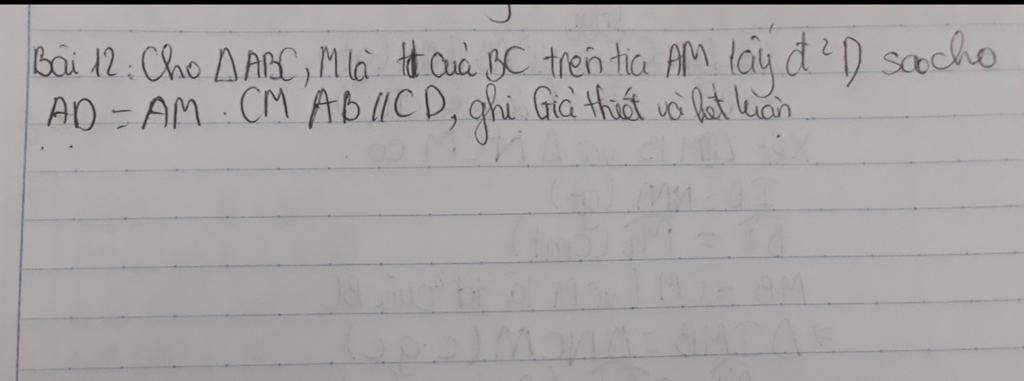 Bài 12: Cho ΔABC, M là tđ của BC trên tia AM lấy đ² D sao cho
AD = AM. CM AB // CD, ghi Giả thiết và kết luận